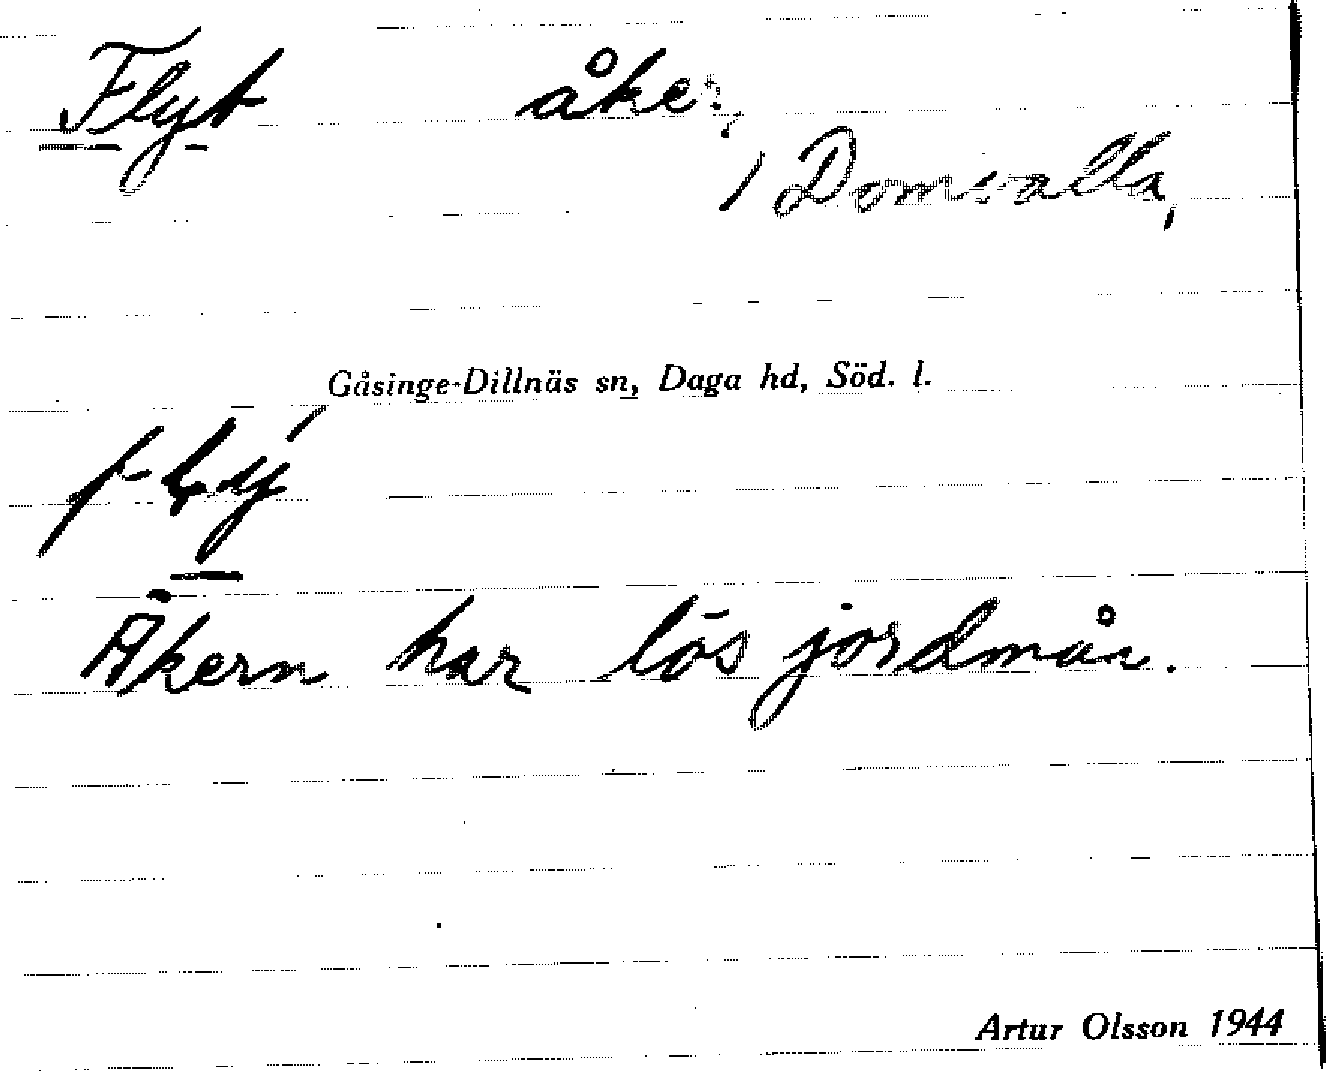 Flyt åker,
i Domvalla,
Gåsinge-Dillnäs sn, Daga hd, Söd. l.
flý
Åkern har lös jordmån.
Artur Olsson 1944